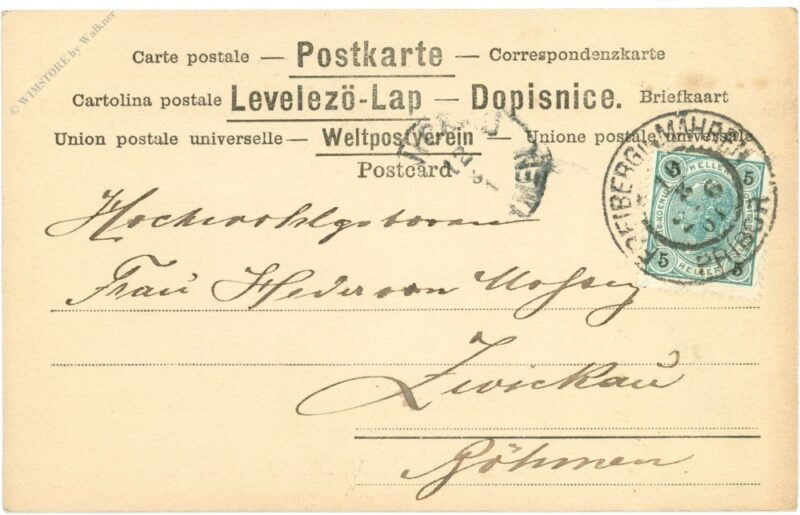 © WIMSTORE by Walkner
Carte postale — Postkarte — Correspondenzkarte
Cartolina postale Levelezö-Lap — Dopisnice. Briefkaart
Union postale universelle — Weltpostverein — Unione postale universale
Postcard
FREIBERG IN MÄHREN
PŘIBOR
5 HELLER 5
5 HELLER 5
Hochwohlgeboren
Frau
Zwickau
Böhmen